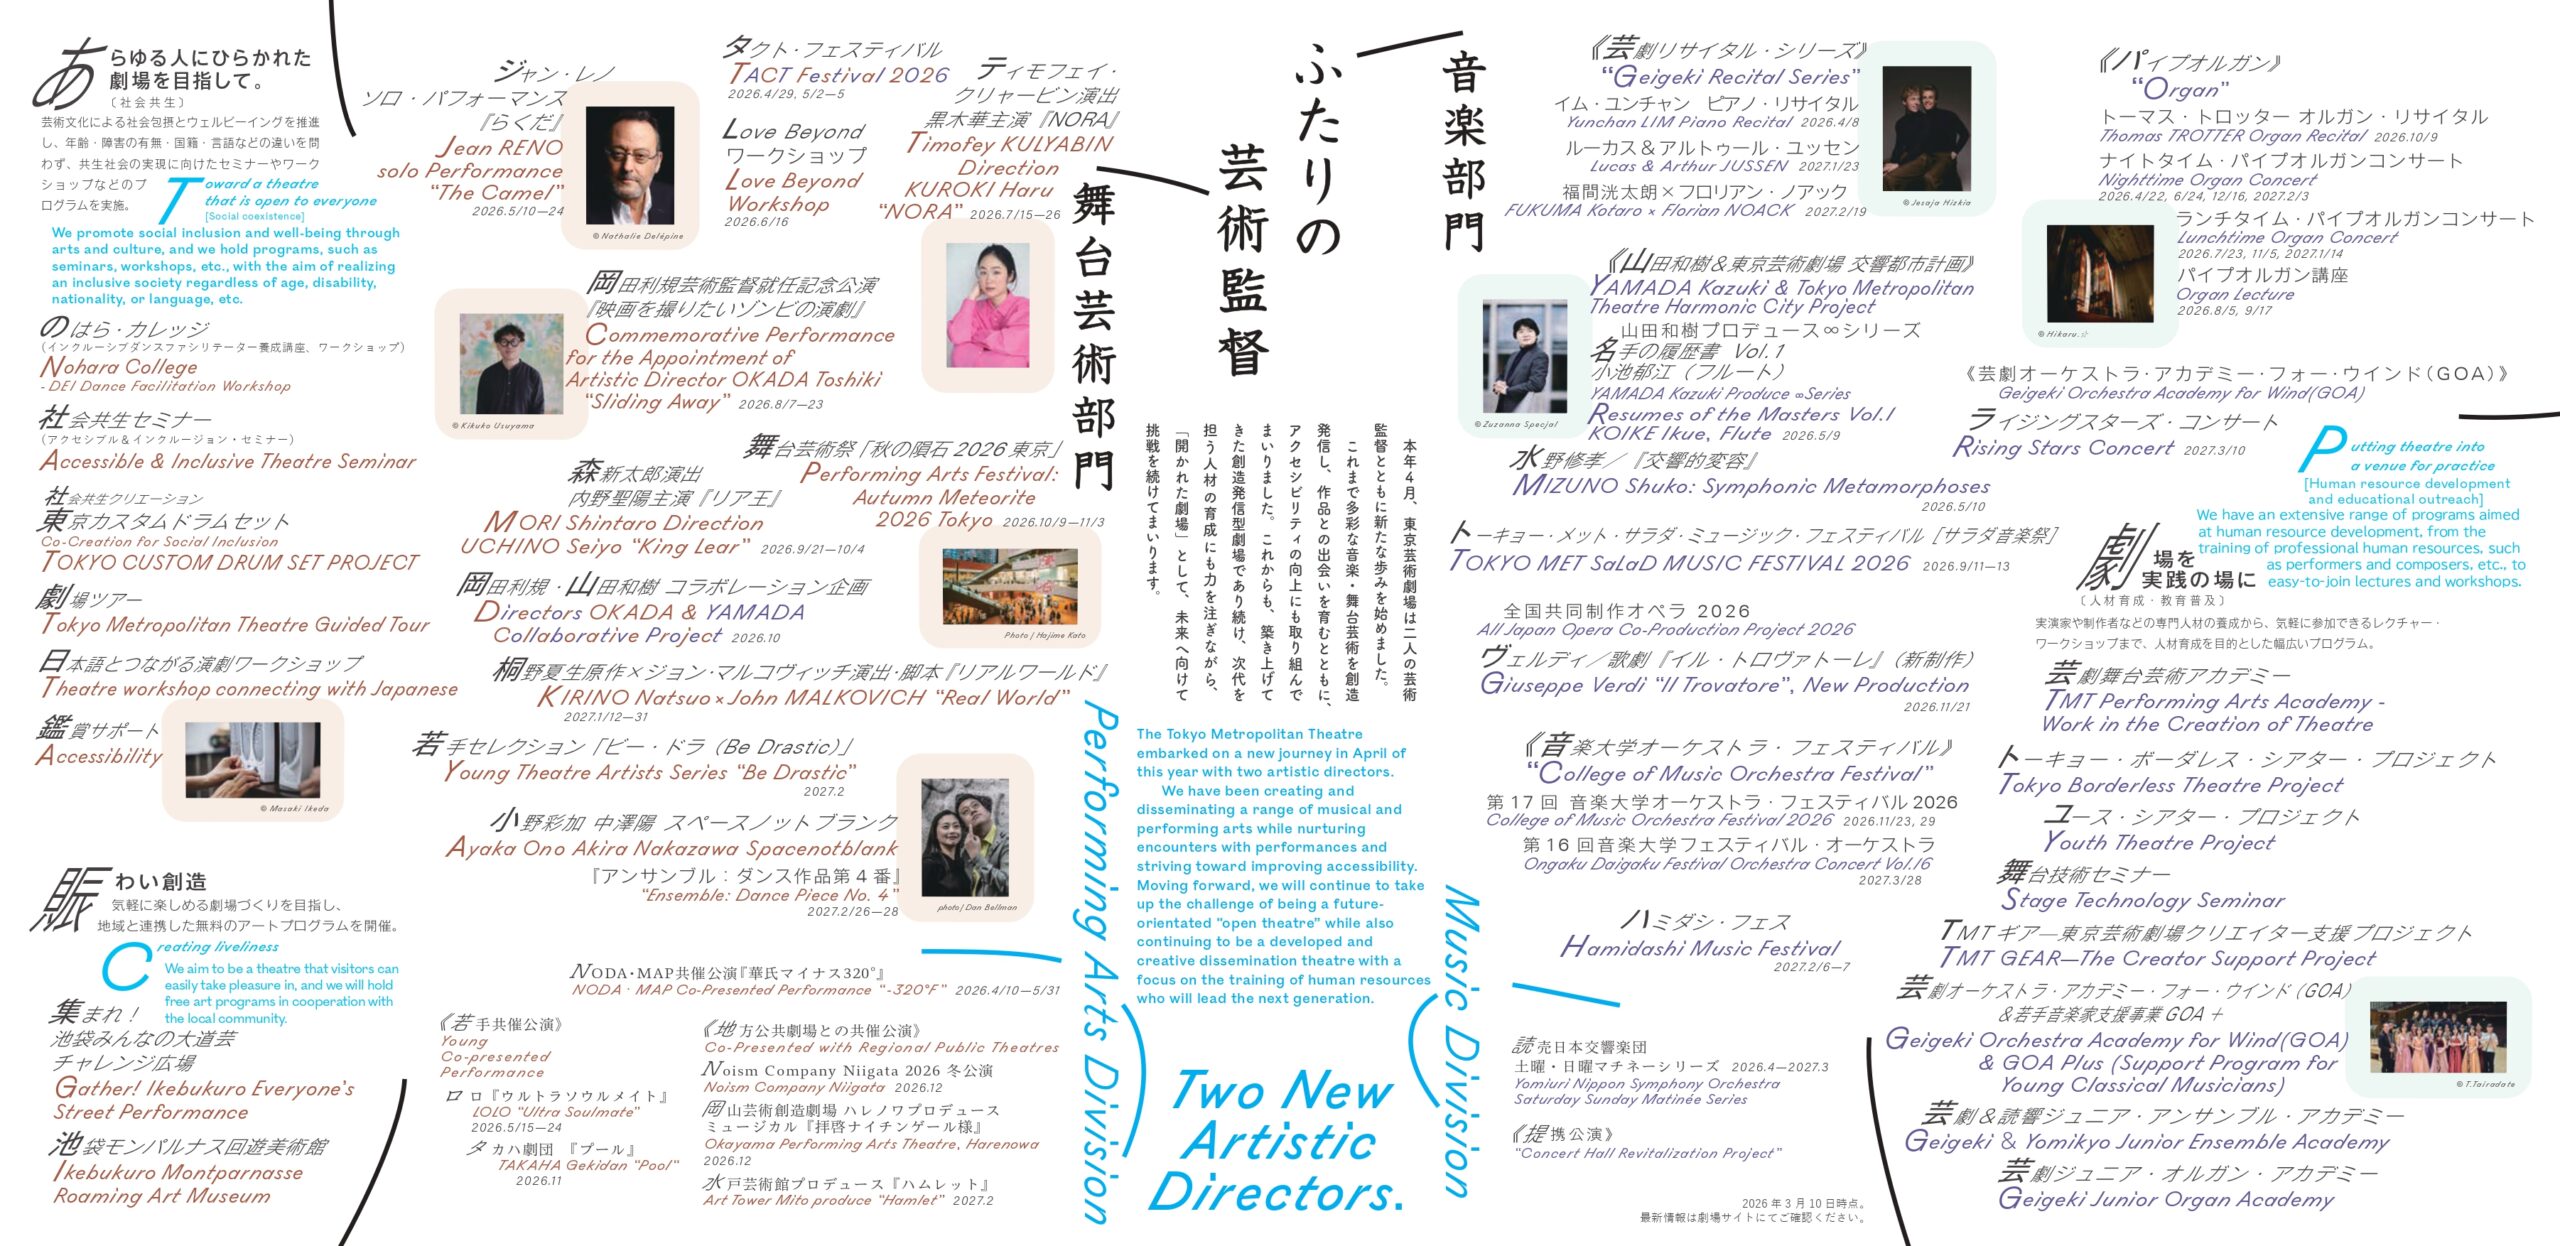 あらゆる人にひらかれた
劇場を目指して。
〔社会共生〕
芸術文化による社会包摂とウェルビーイングを推進
し、年齢・障害の有無・国籍・言語などの違いを問
わず、共生社会の実現に向けたセミナーやワーク
ショップなどのプ
ログラムを実施。
Toward a theatre
that is open to everyone
[Social coexistence]
We promote social inclusion and well-being through
arts and culture, and we hold programs, such as
seminars, workshops, etc., with the aim of realizing
an inclusive society regardless of age, disability,
nationality, or language, etc.
のはら・カレッジ
（インクルーシブダンスファシリテーター養成講座、ワークショップ）
Nohara College
- DEI Dance Facilitation Workshop
社会共生セミナー
（アクセシブル＆インクルージョン・セミナー）
Accessible & Inclusive Theatre Seminar
社会共生クリエーション
東京カスタムドラムセット
Co-Creation for Social Inclusion
TOKYO CUSTOM DRUM SET PROJECT
劇場ツアー
Tokyo Metropolitan Theatre Guided Tour
日本語とつながる演劇ワークショップ
Theatre workshop connecting with Japanese
鑑賞サポート
Accessibility
© Masaki Ikeda
賑わい創造
気軽に楽しめる劇場づくりを目指し、
地域と連携した無料のアートプログラムを開催。
Creating liveliness
We aim to be a theatre that visitors can
easily take pleasure in, and we will hold
free art programs in cooperation with
the local community.
集まれ！
池袋みんなの大道芸
チャレンジ広場
Gather! Ikebukuro Everyone's
Street Performance
池袋モンパルナス回遊美術館
Ikebukuro Montparnasse
Roaming Art Museum
ジャン・レノ
ソロ・パフォーマンス
『らくだ』
Jean RENO
solo Performance
"The Camel"
2026.5/10—24
© Nathalie Delépine
タクト・フェスティバル
TACT Festival 2026
2026.4/29, 5/2—5
Love Beyond
ワークショップ
Love Beyond
Workshop
2026.6/16
ティモフェイ・
クリャービン演出
黒木華主演『NORA』
Timofey KULYABIN
Direction
KUROKI Haru
"NORA" 2026.7/15—26
岡田利規芸術監督就任記念公演
『映画を撮りたいゾンビの演劇』
Commemorative Performance
for the Appointment of
Artistic Director OKADA Toshiki
"Sliding Away" 2026.8/7—23
© Kikuko Usuyama
舞台芸術祭「秋の隕石2026東京」
Performing Arts Festival:
Autumn Meteorite
2026 Tokyo 2026.10/9—11/3
Photo | Hajime Kato
森新太郎演出
内野聖陽主演『リア王』
MORI Shintaro Direction
UCHINO Seiyo "King Lear" 2026.9/21—10/4
岡田利規・山田和樹 コラボレーション企画
Directors OKADA & YAMADA
Collaborative Project 2026.10
桐野夏生原作×ジョン・マルコヴィッチ演出・脚本『リアルワールド』
KIRINO Natsuo×John MALKOVICH "Real World"
2027.1/12—31
若手セレクション「ビー・ドラ（Be Drastic）」
Young Theatre Artists Series "Be Drastic"
2027.2
小野彩加 中澤陽 スペースノットブランク
Ayaka Ono Akira Nakazawa Spacenotblank
『アンサンブル：ダンス作品第4番』
"Ensemble: Dance Piece No. 4"
2027.2/26—28
photo | Dan Bellman
NODA・MAP共催公演『華氏マイナス320°』
NODA・MAP Co-Presented Performance "-320°F" 2026.4/10—5/31
《若手共催公演》
Young
Co-presented
Performance
ロロ『ウルトラソウルメイト』
LOLO "Ultra Soulmate"
2026.5/15—24
タカハ劇団 『プール』
TAKAHA Gekidan "Pool"
2026.11
《地方公共劇場との共催公演》
Co-Presented with Regional Public Theatres
Noism Company Niigata 2026 冬公演
Noism Company Niigata 2026.12
岡山芸術創造劇場 ハレノワプロデュース
ミュージカル『拝啓ナイチンゲール様』
Okayama Performing Arts Theatre, Harenowa
2026.12
水戸芸術館プロデュース『ハムレット』
Art Tower Mito produce "Hamlet" 2027.2
舞台芸術部門
Performing Arts Division
ふたりの
芸術監督
本年4月、東京芸術劇場は二人の芸術
監督とともに新たな歩みを始めました。
これまで多彩な音楽・舞台芸術を創造
発信し、作品との出会いを育むとともに、
アクセシビリティの向上にも取り組んで
まいりました。これからも、築き上げて
きた創造発信型劇場であり続け、次代を
担う人材の育成にも力を注ぎながら、
「開かれた劇場」として、未来へ向けて
挑戦を続けてまいります。
The Tokyo Metropolitan Theatre
embarked on a new journey in April of
this year with two artistic directors.
We have been creating and
disseminating a range of musical and
performing arts while nurturing
encounters with performances and
striving toward improving accessibility.
Moving forward, we will continue to take
up the challenge of being a future-
orientated "open theatre" while also
continuing to be a developed and
creative dissemination theatre with a
focus on the training of human resources
who will lead the next generation.
Two New
Artistic
Directors.
音楽部門
Music Division
《芸劇リサイタル・シリーズ》
"Geigeki Recital Series"
イム・ユンチャン ピアノ・リサイタル
Yunchan LIM Piano Recital 2026.4/8
ルーカス＆アルトゥール・ユッセン
Lucas & Arthur JUSSEN 2027.1/23
福間洸太朗×フロリアン・ノアック
FUKUMA Kotaro × Florian NOACK 2027.2/19
© Jesaja Hizkia
《山田和樹＆東京芸術劇場 交響都市計画》
YAMADA Kazuki & Tokyo Metropolitan
Theatre Harmonic City Project
山田和樹プロデュース∞シリーズ
名手の履歴書 Vol.1
小池郁江（フルート）
YAMADA Kazuki Produce ∞Series
Resumes of the Masters Vol.1
KOIKE Ikue, Flute 2026.5/9
© Zuzanna Specjal
水野修孝／『交響的変容』
MIZUNO Shuko: Symphonic Metamorphoses
2026.5/10
トーキョー・メット・サラダ・ミュージック・フェスティバル［サラダ音楽祭］
TOKYO MET SaLaD MUSIC FESTIVAL 2026 2026.9/11—13
全国共同制作オペラ 2026
All Japan Opera Co-Production Project 2026
ヴェルディ／歌劇『イル・トロヴァトーレ』（新制作）
Giuseppe Verdi "Il Trovatore", New Production
2026.11/21
《音楽大学オーケストラ・フェスティバル》
"College of Music Orchestra Festival"
第17回 音楽大学オーケストラ・フェスティバル2026
College of Music Orchestra Festival 2026 2026.11/23, 29
第16回音楽大学フェスティバル・オーケストラ
Ongaku Daigaku Festival Orchestra Concert Vol.16
2027.3/28
ハミダシ・フェス
Hamidashi Music Festival
2027.2/6—7
読売日本交響楽団
土曜・日曜マチネーシリーズ 2026.4—2027.3
Yomiuri Nippon Symphony Orchestra
Saturday Sunday Matinée Series
《提携公演》
"Concert Hall Revitalization Project"
2026年3月10日時点。
最新情報は劇場サイトにてご確認ください。
《パイプオルガン》
"Organ"
トーマス・トロッター オルガン・リサイタル
Thomas TROTTER Organ Recital 2026.10/9
ナイトタイム・パイプオルガンコンサート
Nighttime Organ Concert
2026.4/22, 6/24, 12/16, 2027.2/3
ランチタイム・パイプオルガンコンサート
Lunchtime Organ Concert
2026.7/23, 11/5, 2027.1/14
パイプオルガン講座
Organ Lecture
2026.8/5, 9/17
© Hikaru.☆
《芸劇オーケストラ・アカデミー・フォー・ウインド（GOA）》
Geigeki Orchestra Academy for Wind(GOA)
ライジングスターズ・コンサート
Rising Stars Concert 2027.3/10
Putting theatre into
a venue for practice
[Human resource development
and educational outreach]
We have an extensive range of programs aimed
at human resource development, from the
training of professional human resources, such
as performers and composers, etc., to
easy-to-join lectures and workshops.
劇場を
実践の場に
〔人材育成・教育普及〕
実演家や制作者などの専門人材の養成から、気軽に参加できるレクチャー・
ワークショップまで、人材育成を目的とした幅広いプログラム。
芸劇舞台芸術アカデミー
TMT Performing Arts Academy -
Work in the Creation of Theatre
トーキョー・ボーダレス・シアター・プロジェクト
Tokyo Borderless Theatre Project
ユース・シアター・プロジェクト
Youth Theatre Project
舞台技術セミナー
Stage Technology Seminar
TMTギア—東京芸術劇場クリエイター支援プロジェクト
TMT GEAR—The Creator Support Project
芸劇オーケストラ・アカデミー・フォー・ウインド（GOA）
＆若手音楽家支援事業GOA＋
Geigeki Orchestra Academy for Wind(GOA)
& GOA Plus (Support Program for
Young Classical Musicians)
© T.Tairadate
芸劇＆読響ジュニア・アンサンブル・アカデミー
Geigeki & Yomikyo Junior Ensemble Academy
芸劇ジュニア・オルガン・アカデミー
Geigeki Junior Organ Academy